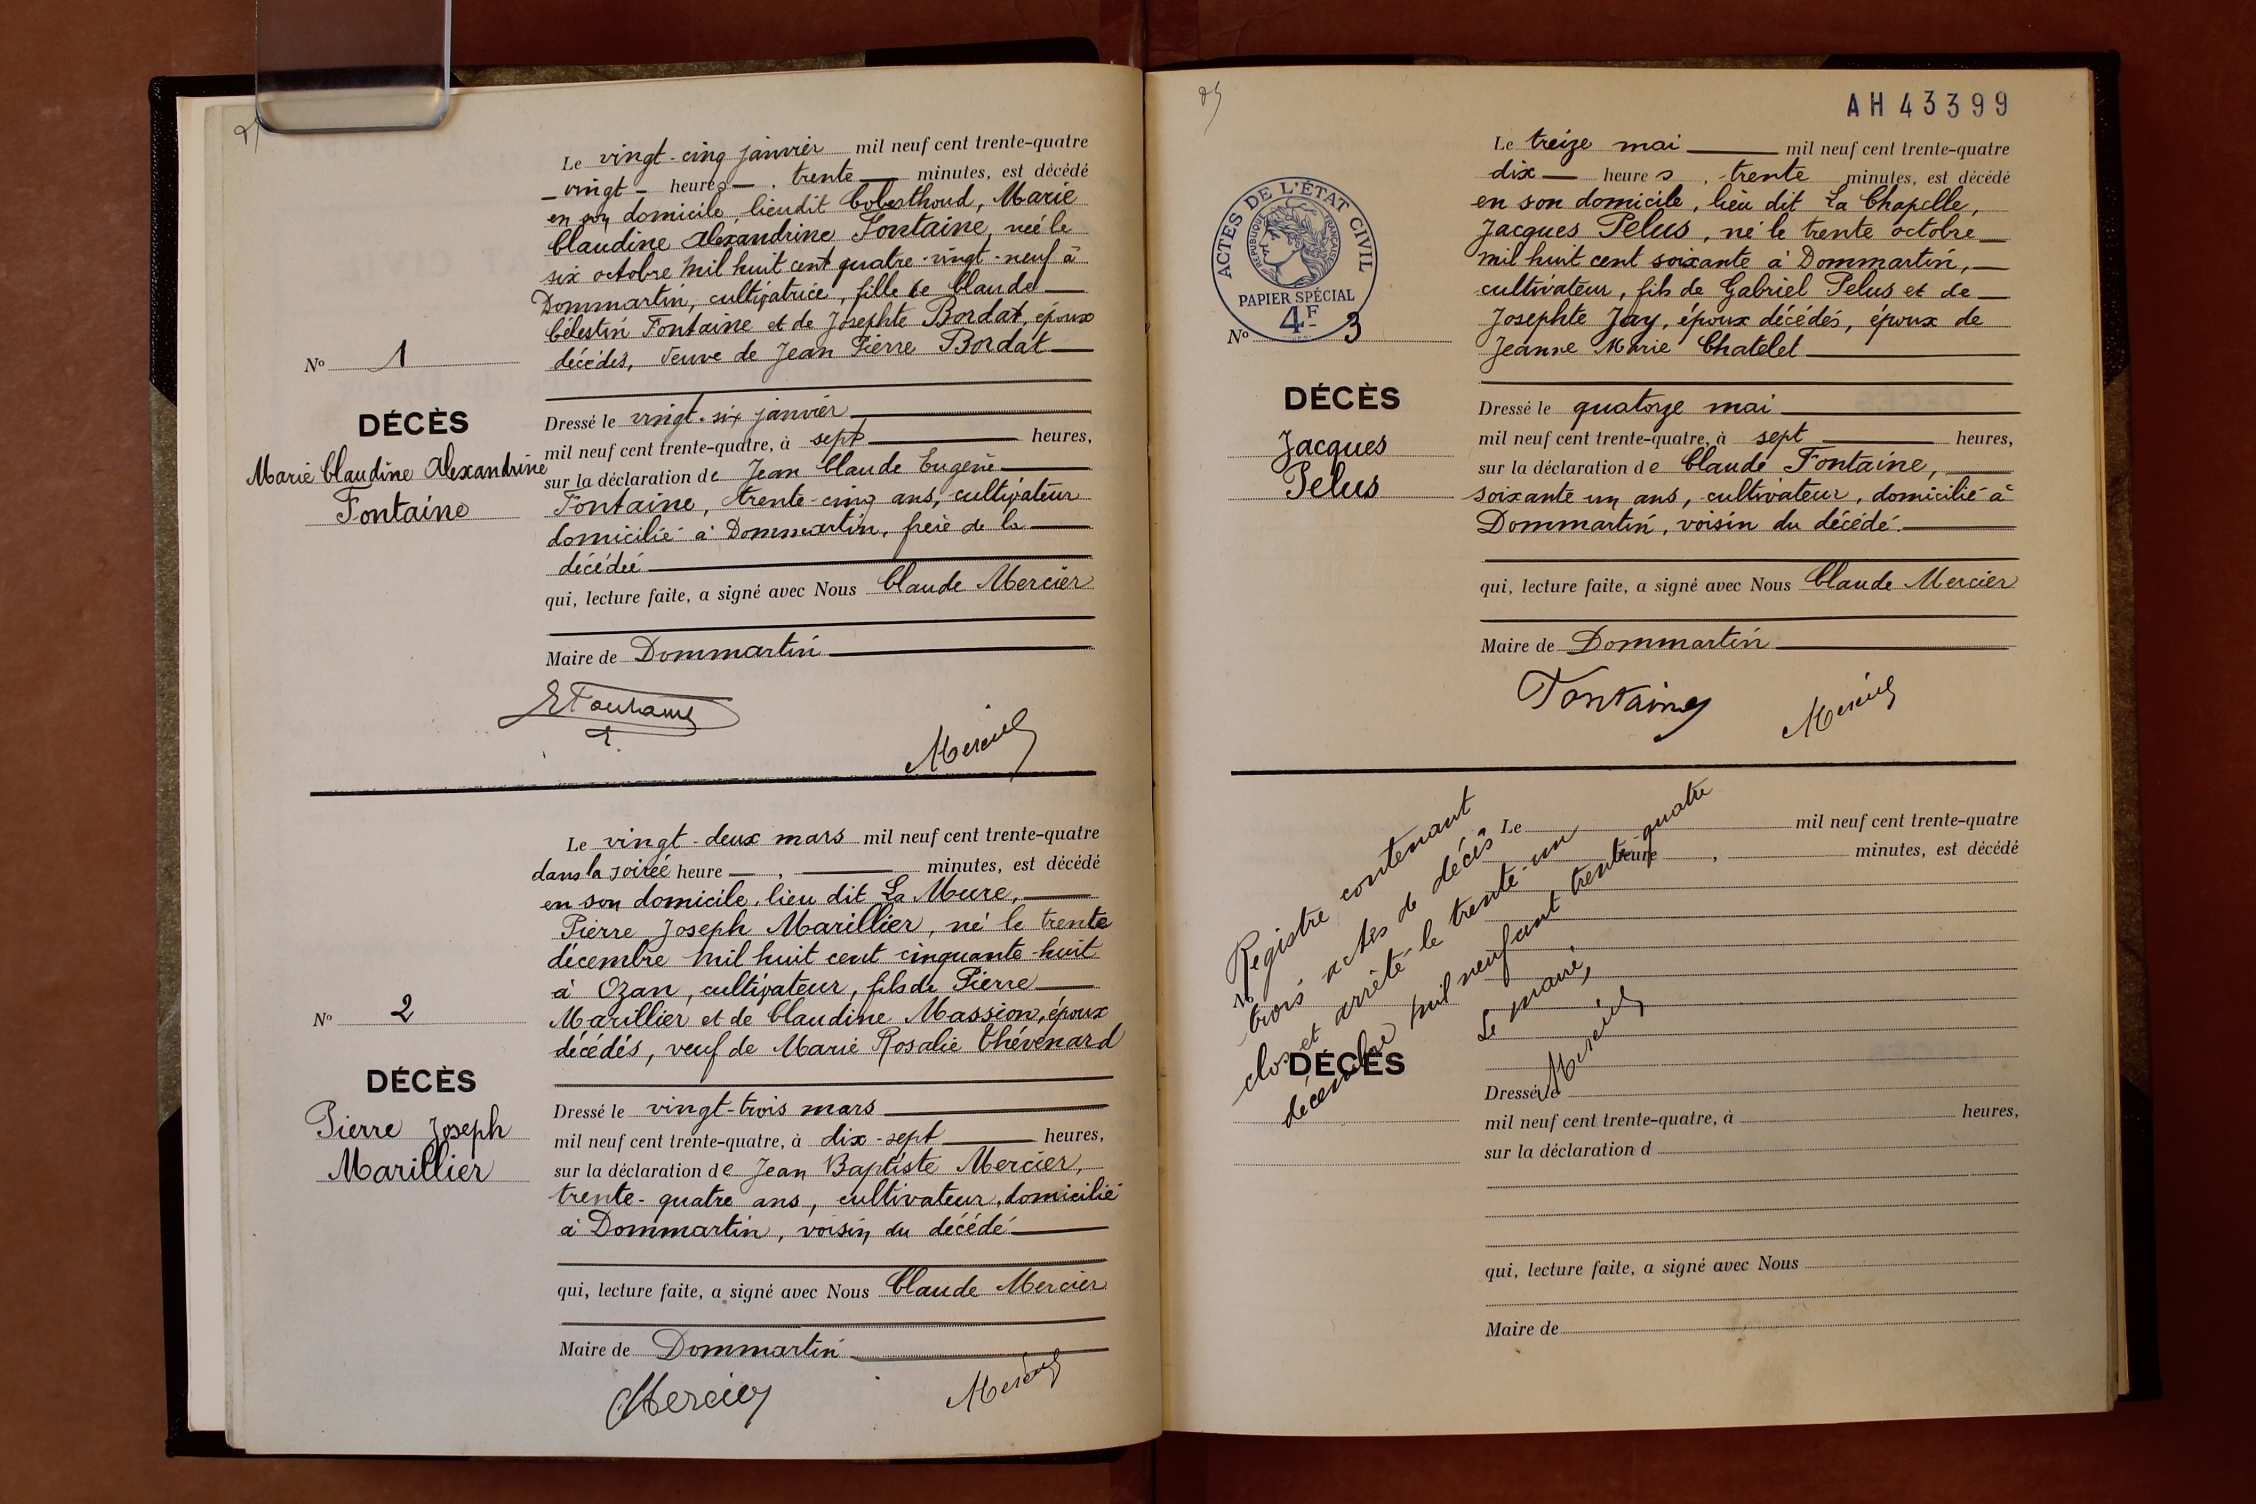 Le vingt-cinq janvier mil neuf cent trente-quatre
vingt heures, trente minutes, est décédé
en son domicile, lieudit Marie
Claudine Alexandrine Fontaine, née le
six octobre mil huit cent quatre-vingt-neuf à
Dommartin, cultivatrice, fille de Claude
Célestin Fontaine et de Josephte Bordat, époux
décédés, veuve de Jean Pierre Bordat
No 1
DÉCÈS
Marie Claudine Alexandrine
Fontaine
Dressé le vingt-six janvier
mil neuf cent trente-quatre, à sept heures,
sur la déclaration de Jean Claude Eugène
Fontaine, trente-cinq ans, cultivateur
domicilié à Dommartin, frère de la
décédée
qui, lecture faite, a signé avec Nous Claude Mercier
Maire de Dommartin
E Fontaine
Mercier
Le vingt-deux mars mil neuf cent trente-quatre
dans la soirée heure , minutes, est décédé
en son domicile, lieu dit La Mure,
Pierre Joseph Marillier, né le trente
décembre mil huit cent cinquante-huit
à Ozan, cultivateur, fils de Pierre
Marillier et de Claudine Massion, époux
décédés, veuf de Marie Rosalie Thévenard
No 2
DÉCÈS
Pierre Joseph
Marillier
Dressé le vingt-trois mars
mil neuf cent trente-quatre, à dix-sept heures,
sur la déclaration de Jean Baptiste Mercier,
trente-quatre ans, cultivateur, domicilié
à Dommartin, voisin du décédé
qui, lecture faite, a signé avec Nous Claude Mercier
Maire de Dommartin
Mercier
Mercier
AH 43399
Le treize mai mil neuf cent trente-quatre
dix heures, trente minutes, est décédé
en son domicile, lieu dit La Chapelle,
Jacques Pelus, né le trente octobre
mil huit cent soixante à Dommartin,
cultivateur, fils de Gabriel Pelus et de
Josephte Jay, époux décédés, époux de
Jeanne Marie Chatelet
ACTES DE L'ÉTAT CIVIL
RÉPUBLIQUE FRANÇAISE
PAPIER SPÉCIAL
4F
No 3
DÉCÈS
Jacques
Pelus
Dressé le quatorze mai
mil neuf cent trente-quatre, à sept heures,
sur la déclaration de Claude Fontaine,
soixante un ans, cultivateur, domicilié à
Dommartin, voisin du décédé
qui, lecture faite, a signé avec Nous Claude Mercier
Maire de Dommartin
Fontaine
Mercier
Registre contenant
trois actes de décès
clos et arrêté le trente-un
décembre mil neuf cent trente-quatre
Le maire,
Mercier
Le mil neuf cent trente-quatre
heure , minutes, est décédé
No
DÉCÈS
Dressé le
mil neuf cent trente-quatre, à heures,
sur la déclaration d
qui, lecture faite, a signé avec Nous
Maire de